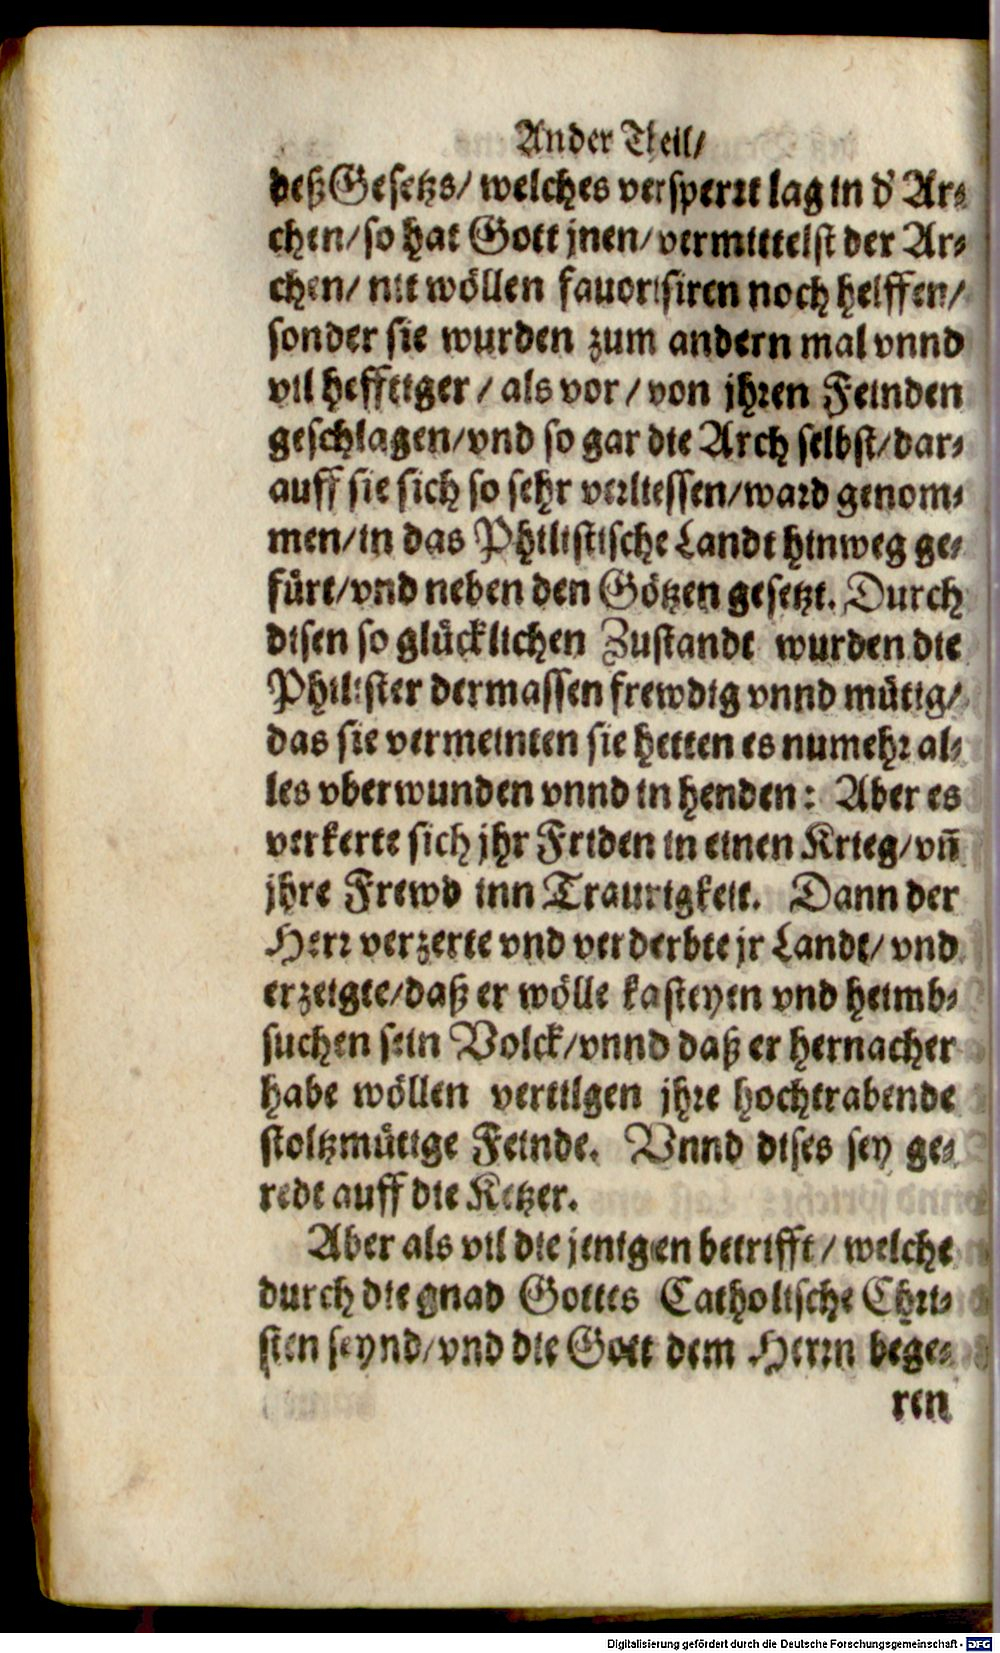 Ander Theil/
deß Gesetzs/ welches versperrt lag in d' Ar⸗
chen/ so hat Gott jnen/ vermittelst der Ar⸗
chen/ nit wöllen fauorisiren noch helffen/
sonder sie wurden zum andern mal vnnd
vil hefftiger / als vor / von jhren Feinden
geschlagen/ vnd so gar die Arch selbst/ dar⸗
auff sie sich so sehr verliessen/ ward genom⸗
men/ in das Philistische Landt hinweg ge⸗
fürt/ vnd neben den Götzen gesetzt. Durch
disen so glücklichen Zustandt wurden die
Philister dermassen frewdig vnnd mütig/
das sie vermeinten sie hetten es numehr al⸗
les vberwunden vnnd in henden: Aber es
verkerte sich jhr Friden in einen Krieg/ vn̄
jhre Frewd inn Traurigkeit. Dann der
Herr verzerte vnd verderbte jr Landt/ vnd
erzeigte/ daß er wölle kasteyen vnd heimb⸗
suchen sein Volck/ vnnd daß er hernacher
habe wöllen vertilgen jhre hochtrabende
stoltzmütige Feinde. Vnnd dises sey ge⸗
redt auff die Ketzer.
Aber als vil die jenigen betrifft / welche
durch die gnad Gottes Catholische Chri⸗
sten seynd/ vnd die Gott dem Herrn bege⸗
ren
Digitalisierung gefördert durch die Deutsche Forschungsgemeinschaft - DFG